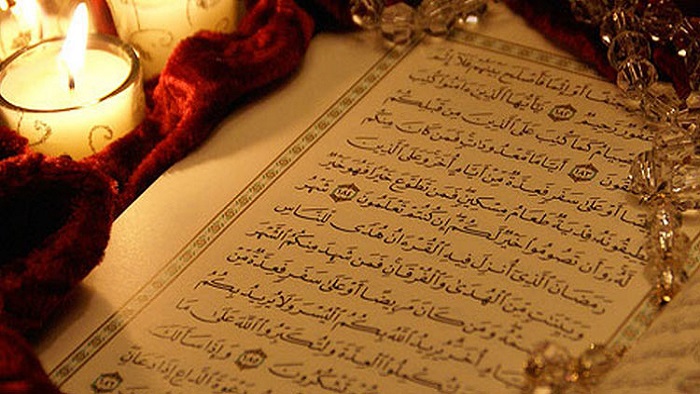 جَنَفًا أَوْ إِثْمًا فَأَصْلَحَ بَيْنَهُمْ فَلَا إِثْمَ
غَفُورٌ رَّحِيمٌ ١٨٢ يَٰٓأَيُّهَا ٱلَّذِينَ ءَامَنُوا۟ كُتِبَ
ٱلصِّيَامُ كَمَا كُتِبَ عَلَى ٱلَّذِينَ مِن قَبْلِكُمْ
تَتَّقُونَ ١٨٣ أَيَّامًا مَّعْدُودَٰتٍ فَمَن كَانَ مِنكُم
مَّرِيضًا أَوْ عَلَىٰ سَفَرٍ فَعِدَّةٌ مِّنْ أَيَّامٍ أُخَرَ وَعَلَى ٱلَّذِينَ
يُطِيقُونَهُۥ فِدْيَةٌ طَعَامُ مِسْكِينٍ فَمَن تَطَوَّعَ خَيْرًا فَهُوَ خَيْرٌ
لَّهُۥ وَأَن تَصُومُوا۟ خَيْرٌ لَّكُمْ إِن كُنتُمْ تَعْلَمُونَ ١٨٤ شَهْرُ
رَمَضَانَ ٱلَّذِىٓ أُنزِلَ فِيهِ ٱلْقُرْءَانُ هُدًى لِّلنَّاسِ
وَبَيِّنَٰتٍ مِّنَ ٱلْهُدَىٰ وَٱلْفُرْقَانِ فَمَن شَهِدَ مِنكُمُ ٱلشَّهْرَ
وَمَن كَانَ مَرِيضًا أَوْ عَلَىٰ سَفَرٍ فَعِدَّةٌ مِّنْ
أَيَّامٍ أُخَرَ يُرِيدُ ٱللَّهُ بِكُمُ ٱلْيُسْرَ وَلَا يُرِيدُ بِكُمُ
وَلِتُكْمِلُوا۟ ٱلْعِدَّةَ وَلِتُكَبِّرُوا۟ ٱللَّهَ عَلَىٰ مَا
تَشْكُرُونَ ١٨٥ وَإِذَا سَأَلَكَ
دَعْوَةَ ٱلدَّاعِ إِذَا دَعَانِ
١٨٦